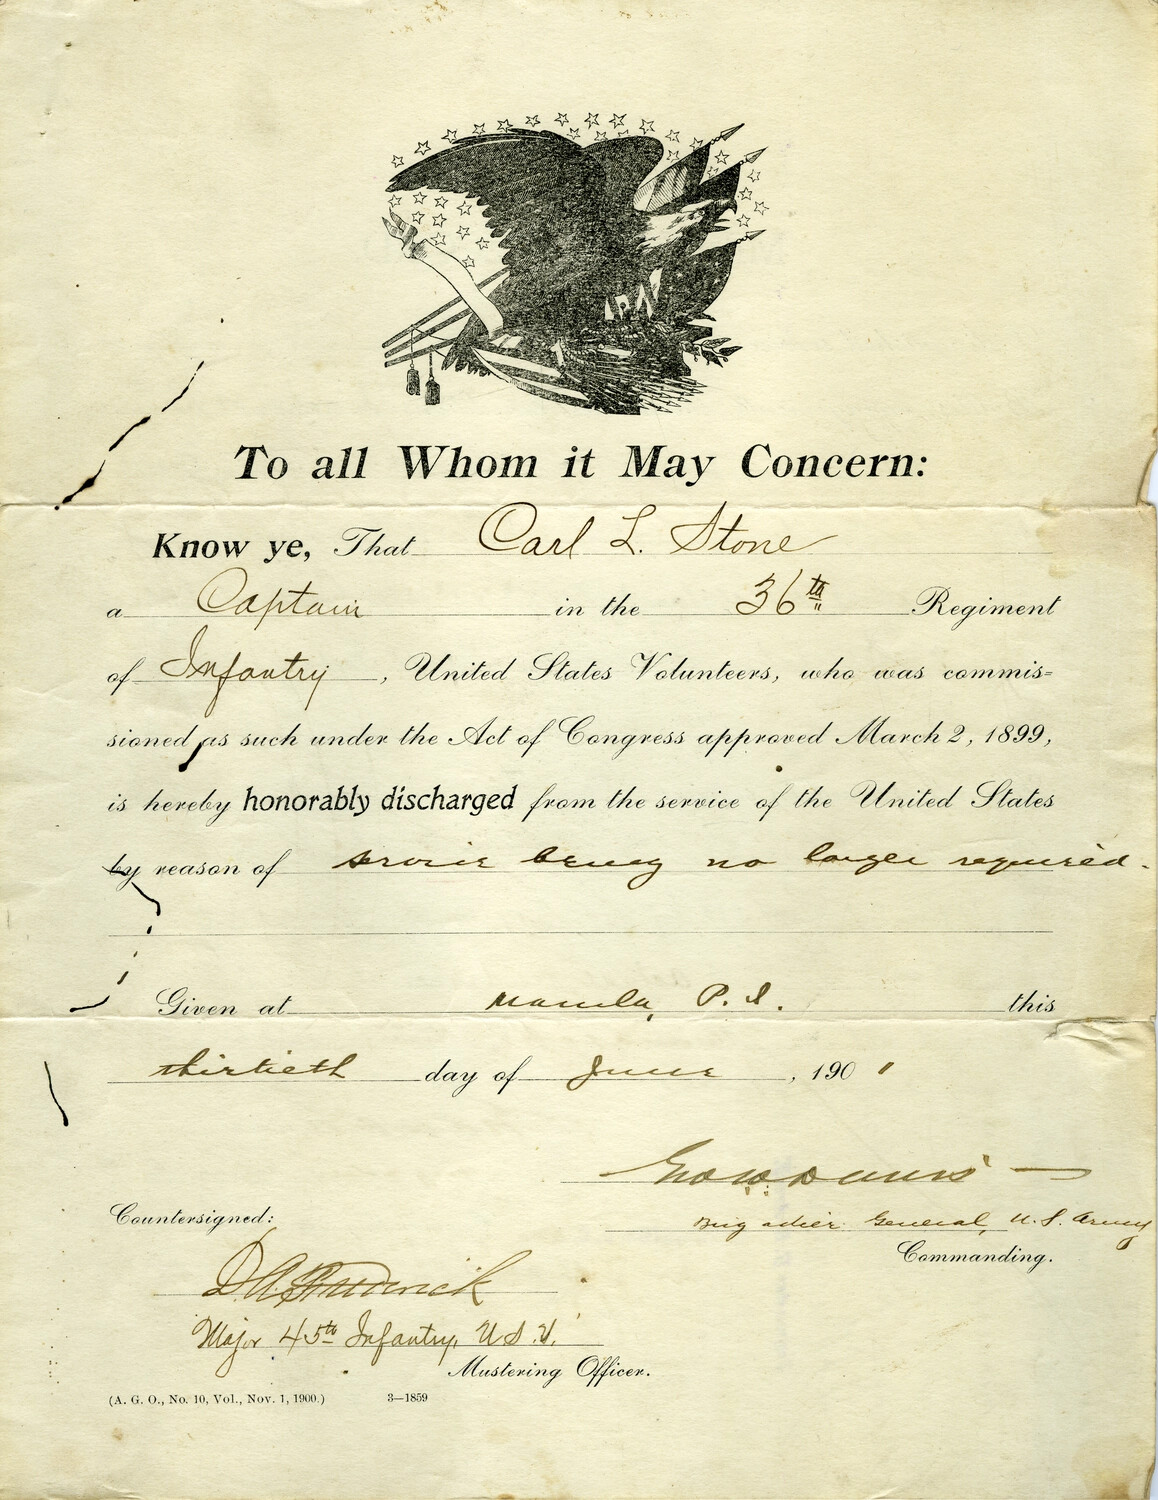 To all Whom it May Concern:
Know ye, That Carl L. Stone
a Captain in the 36th Regiment
of Infantry, United States Volunteers, who was commis=
sioned as such under the Act of Congress approved March 2, 1899,
is hereby honorably discharged from the service of the United States
by reason of service being no longer required.
Given at Manila, P. I. this
thirtieth day of June, 1901
Brigadier General, U. S. Army
Commanding.
Countersigned:
Major 45th Infantry, U S V.
Mustering Officer.
(A. G. O., No. 10, Vol., Nov. 1, 1900.) 3—1859